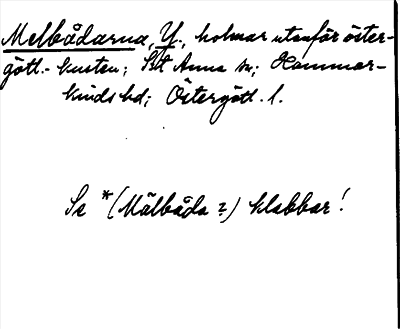 Melbådarna, Y., holmar utanför öster-
götl.- kusten; S:t Anna sn; Hammar-
kinds hd; Östergötl. l.
Se *(Mälbåda ?) klabbar!